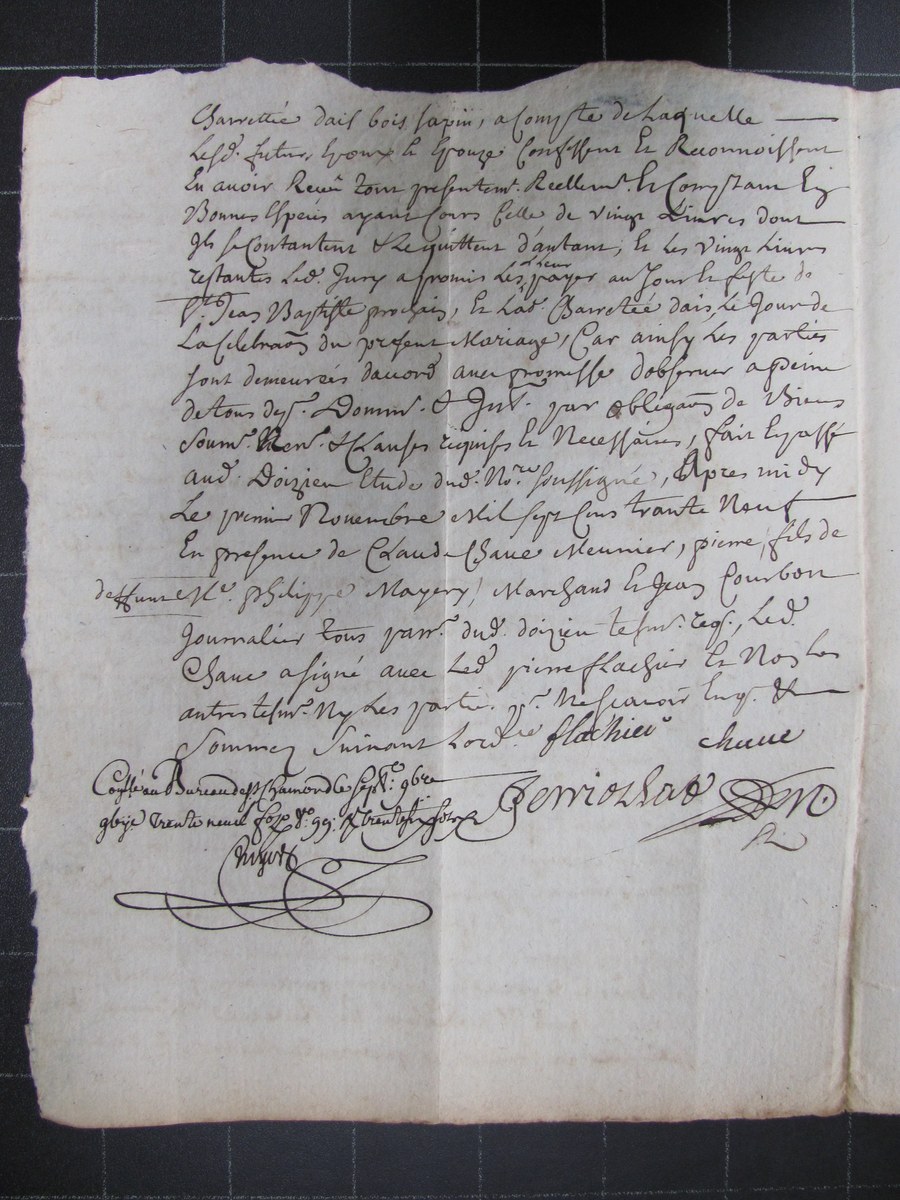 Charrettée dais bois sapin, a Compte de Laquelle
Lesd. futur Epoux et Epouze Confessent Et Reconnoissent
En avoir Receu tout presentemt. Reellemt. Et Comptant En
Bonnes Especes ayant Cours Celle de vingt Livres dont
Ils se Contantent & Lequittent d'autant, Et Les vingt Livres
restantes Led. Jury a promis Les et Leur payer au Jour Et feste de
St. Jean Baptiste prochain, Et Lad. Charretée dais, Le Jour de
La Celebraõn du present Mariage, Car ainsy Les parties
sont demeurées daccord avec promesse d'observer a peine
de tous desp. Domm. & Int. par obligaõn de Biens
Soum. Ren. & Clauses requises Et Necessaires, fait Et passé
aud. Doizieu Etude dud. Nore. soussigné, Apres midy
Le premier Novembre Mil sept Cens trante Neuf
En presence de Claude Chave Meunier, pierre, fils de
deffunt Me. philippe Mayery, Marchand Et Jean Courbon
Journalier tous parr. dud. doizieu tesm. req., Led.
Chave a signé avec Led. pierre flachier Et Non Les
autres tesm. Ny Les partie. pr. Ne scavoir Enq. &
Sommez Suivant Lord.ce flachier chave
Conllé au Bureau de St. Chamond le sept 9bre
trente neuf trente six